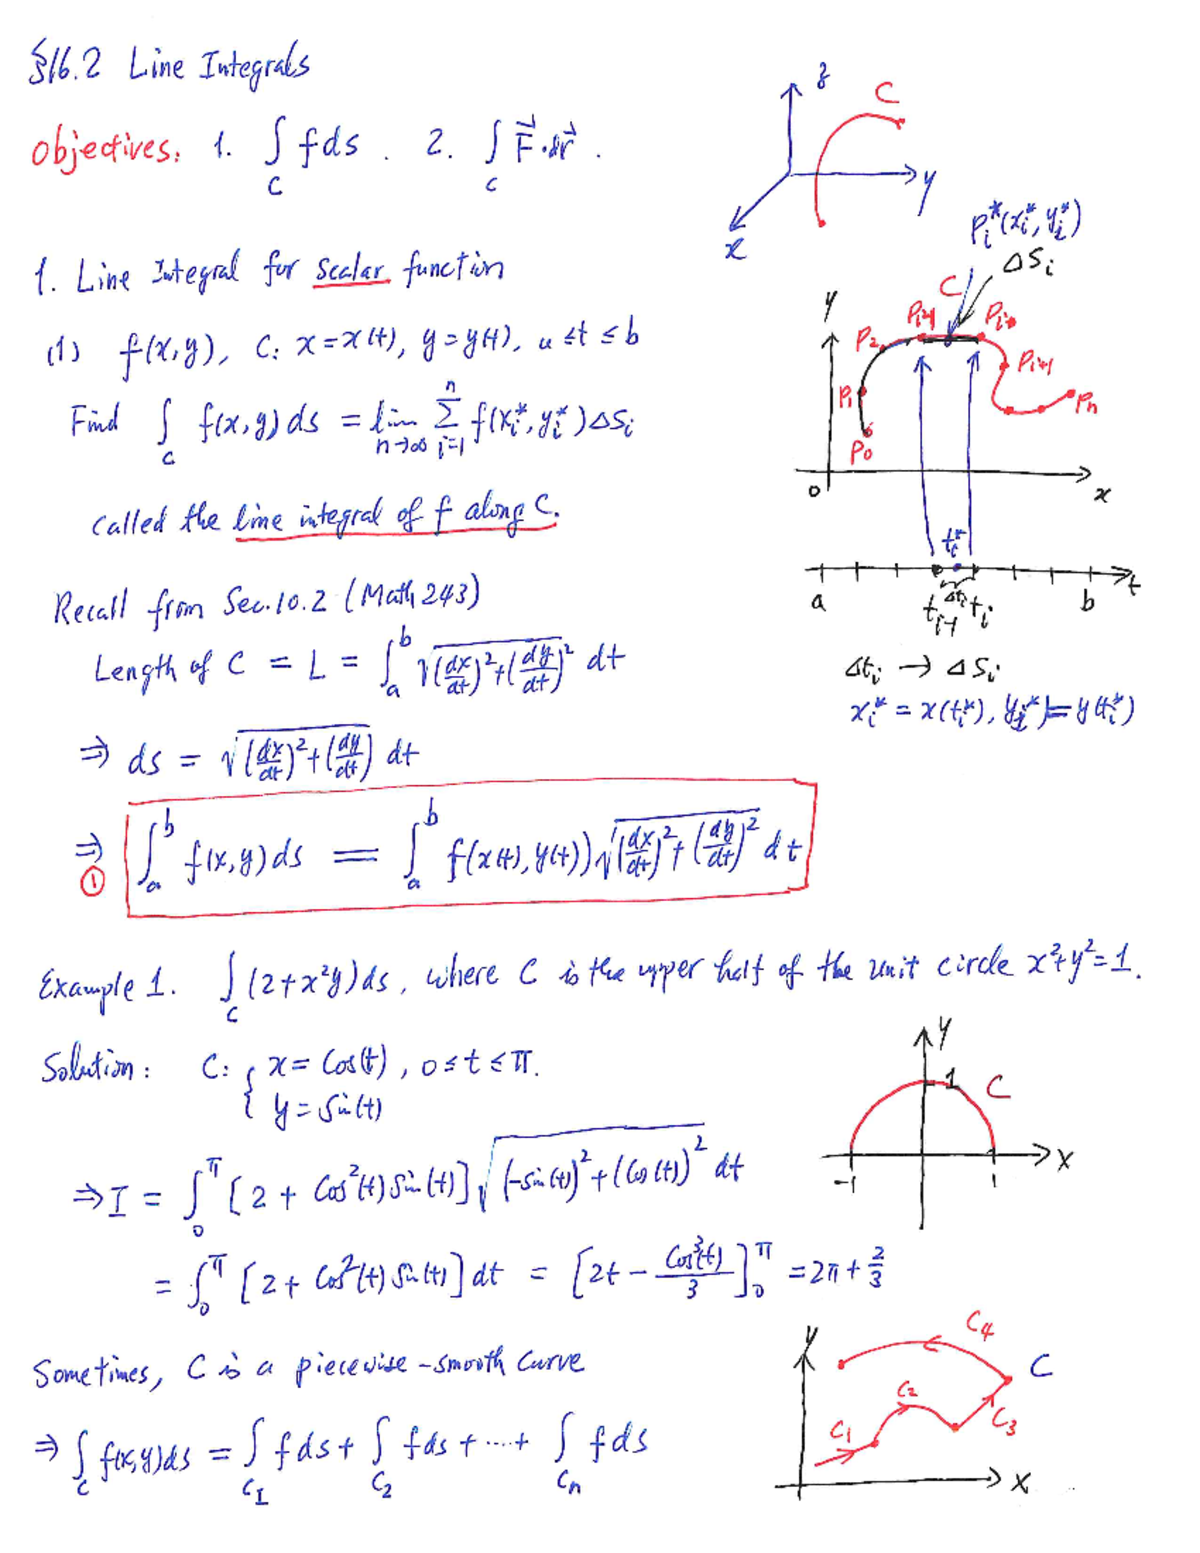 §16.2 Line Integrals
Objectives: 1. ∫_C f ds . 2. ∫_C F⃗·dr⃗ .
z
C
y
x
1. Line Integral for scalar function
(1) f(x,y), C: x=x(t), y=y(t), a ≤t ≤ b
Find ∫_C f(x,y) ds = lim_{n→∞} Σ_{i=1}^{n} f(x_i^*, y_i^*) ΔS_i
called the line integral of f along C.
P_i^*(x_i^*, y_i^*)
ΔS_i
C
y
P_{i-1}
P_i
P_2
P_{i+1}
P_1
P_n
P_0
0
x
t_i^*
a
t_{i-1}
Δt_i
t_i
b
t
Δt_i → ΔS_i
x_i^* = x(t_i^*), y_i^* = y(t_i^*)
Recall from Sec.10.2 (Math 243)
Length of C = L = ∫_a^b √((dx/dt)²+(dy/dt)²) dt
⇒ ds = √((dx/dt)²+(dy/dt)) dt
⇒ ① ∫_a^b f(x,y) ds = ∫_a^b f(x(t), y(t)) √((dx/dt)²+(dy/dt)²) dt
Example 1. ∫_C (2+x²y) ds, where C is the upper half of the unit circle x²+y²=1.
Solution: C: { x = Cos(t), 0≤t≤π.
y = Sin(t)
y
1
C
-1
1
x
⇒ I = ∫_0^π [2 + Cos²(t) Sin(t)] √((-sin(t))²+(Cos(t))²) dt
= ∫_0^π [2 + Cos²(t) Sin(t)] dt = [2t − Cos³(t)/3]_0^π = 2π + 2/3
Sometimes, C is a piecewise-smooth curve
⇒ ∫_C f(x,y) ds = ∫_{C_1} f ds + ∫_{C_2} f ds + ····+ ∫_{C_n} f ds
y
C_4
C
C_2
C_1
C_3
x